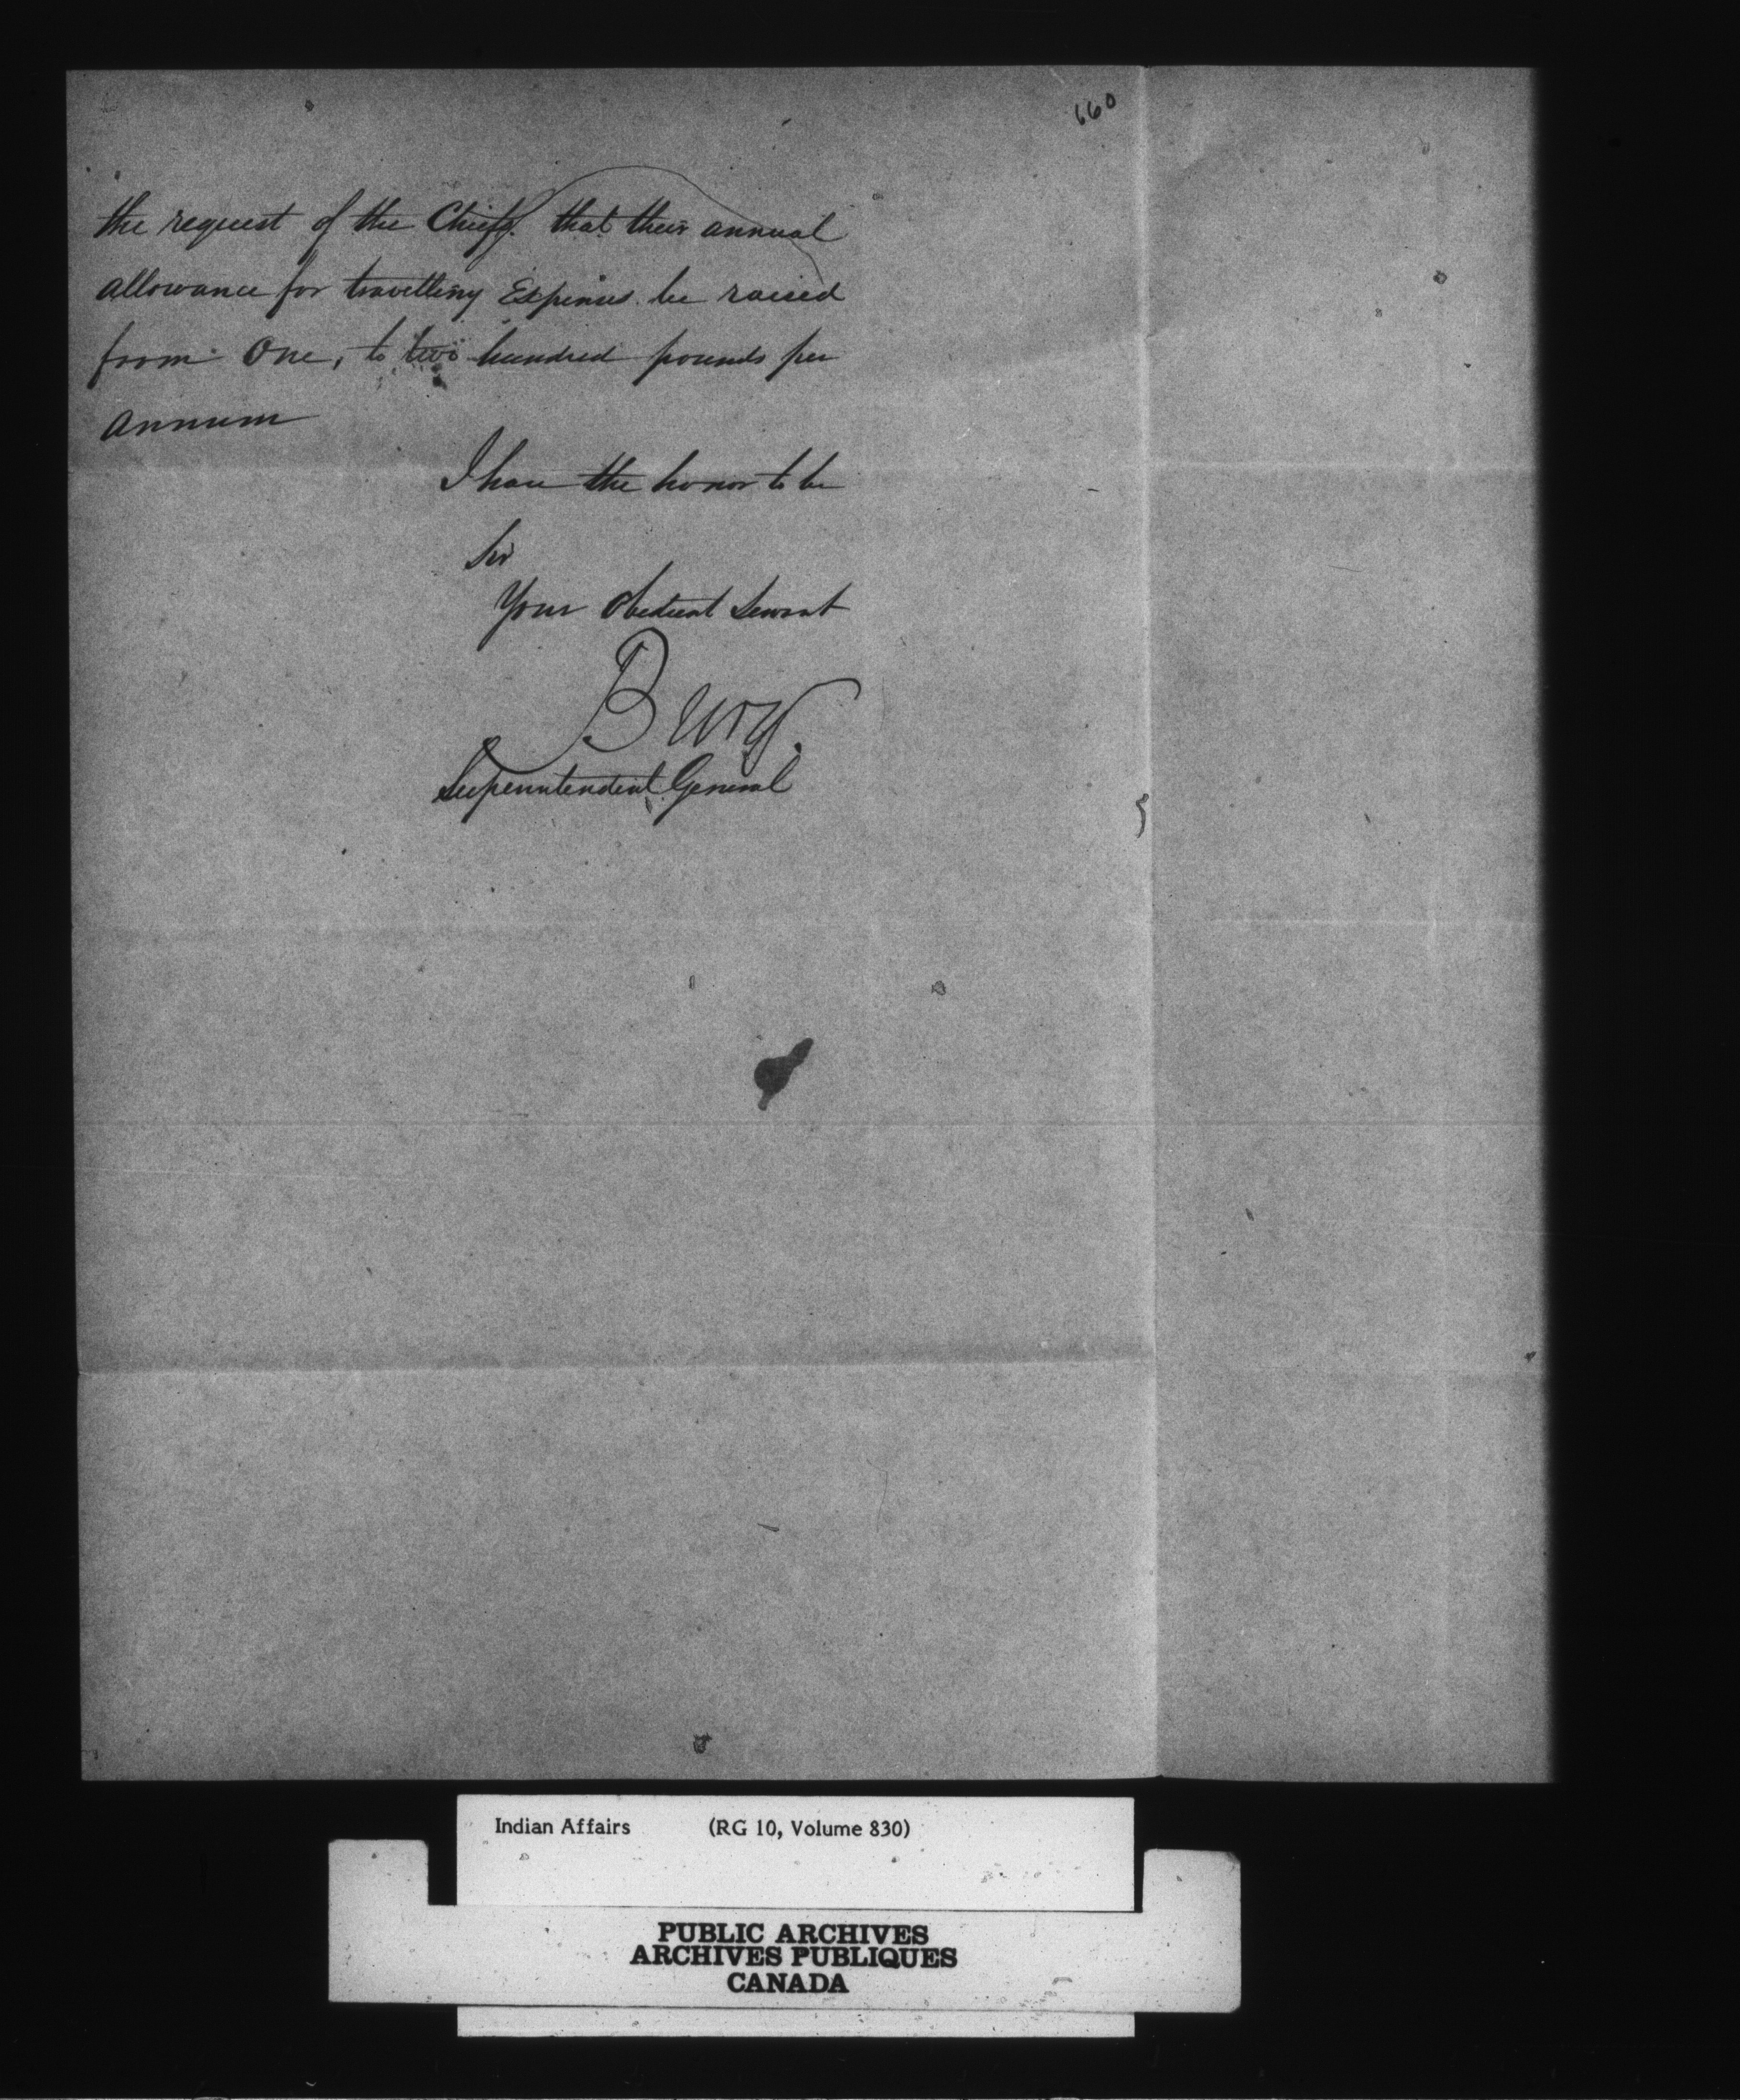 660
the request of the Chiefs. that their annual
allowance for travelling Expenses be raised
from One, to two hundred pounds per
annum
I have the honor to be
Sir
Your obedient Servant
Bury.
Superintendent General
Indian Affairs (RG 10, Volume 830)
PUBLIC ARCHIVES
ARCHIVES PUBLIQUES
CANADA